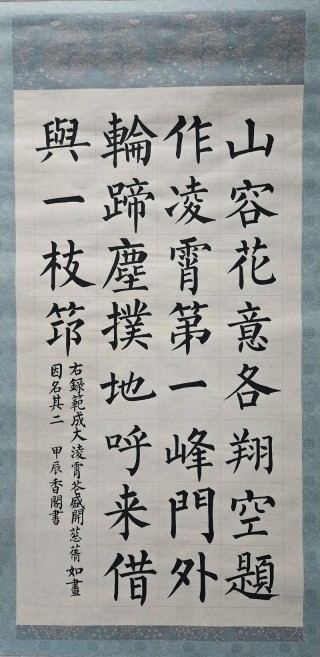 山容花意各翔空題
作凌霄第一峰門外
輪蹄塵撲地呼来借
與一枝筇
右録範成大凌霄花盛開葱蒨如畫
因名其二 甲辰香閣書